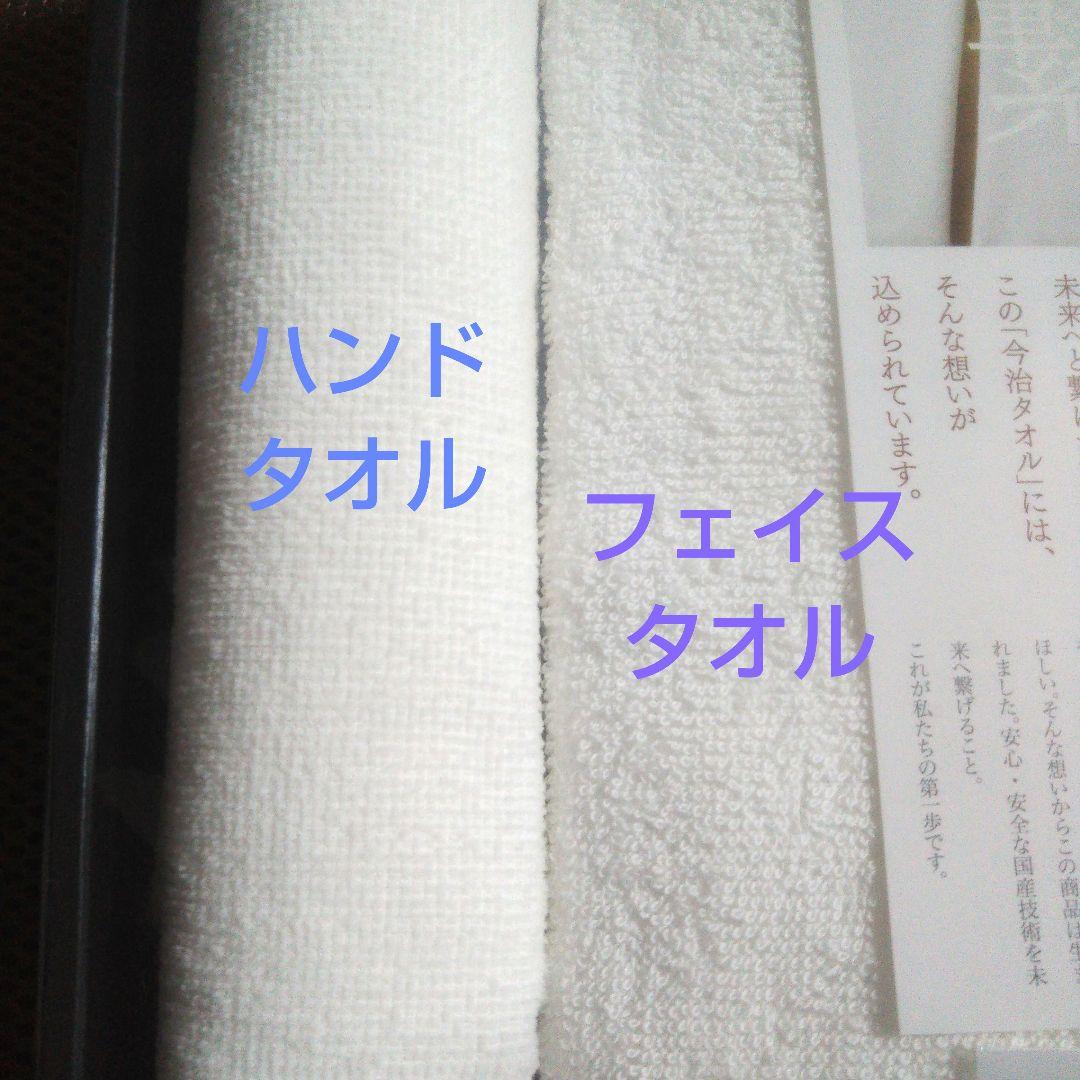 ハンド
タオル
フェイス
タオル
未来へと繋げ
この「今治タオル」には、
そんな想いが
込められています。
ほしい。そんな想いからこの商品は生ま
れました。安心・安全な国産技術を未
来へ繋げること。
これが私たちの第一歩です。